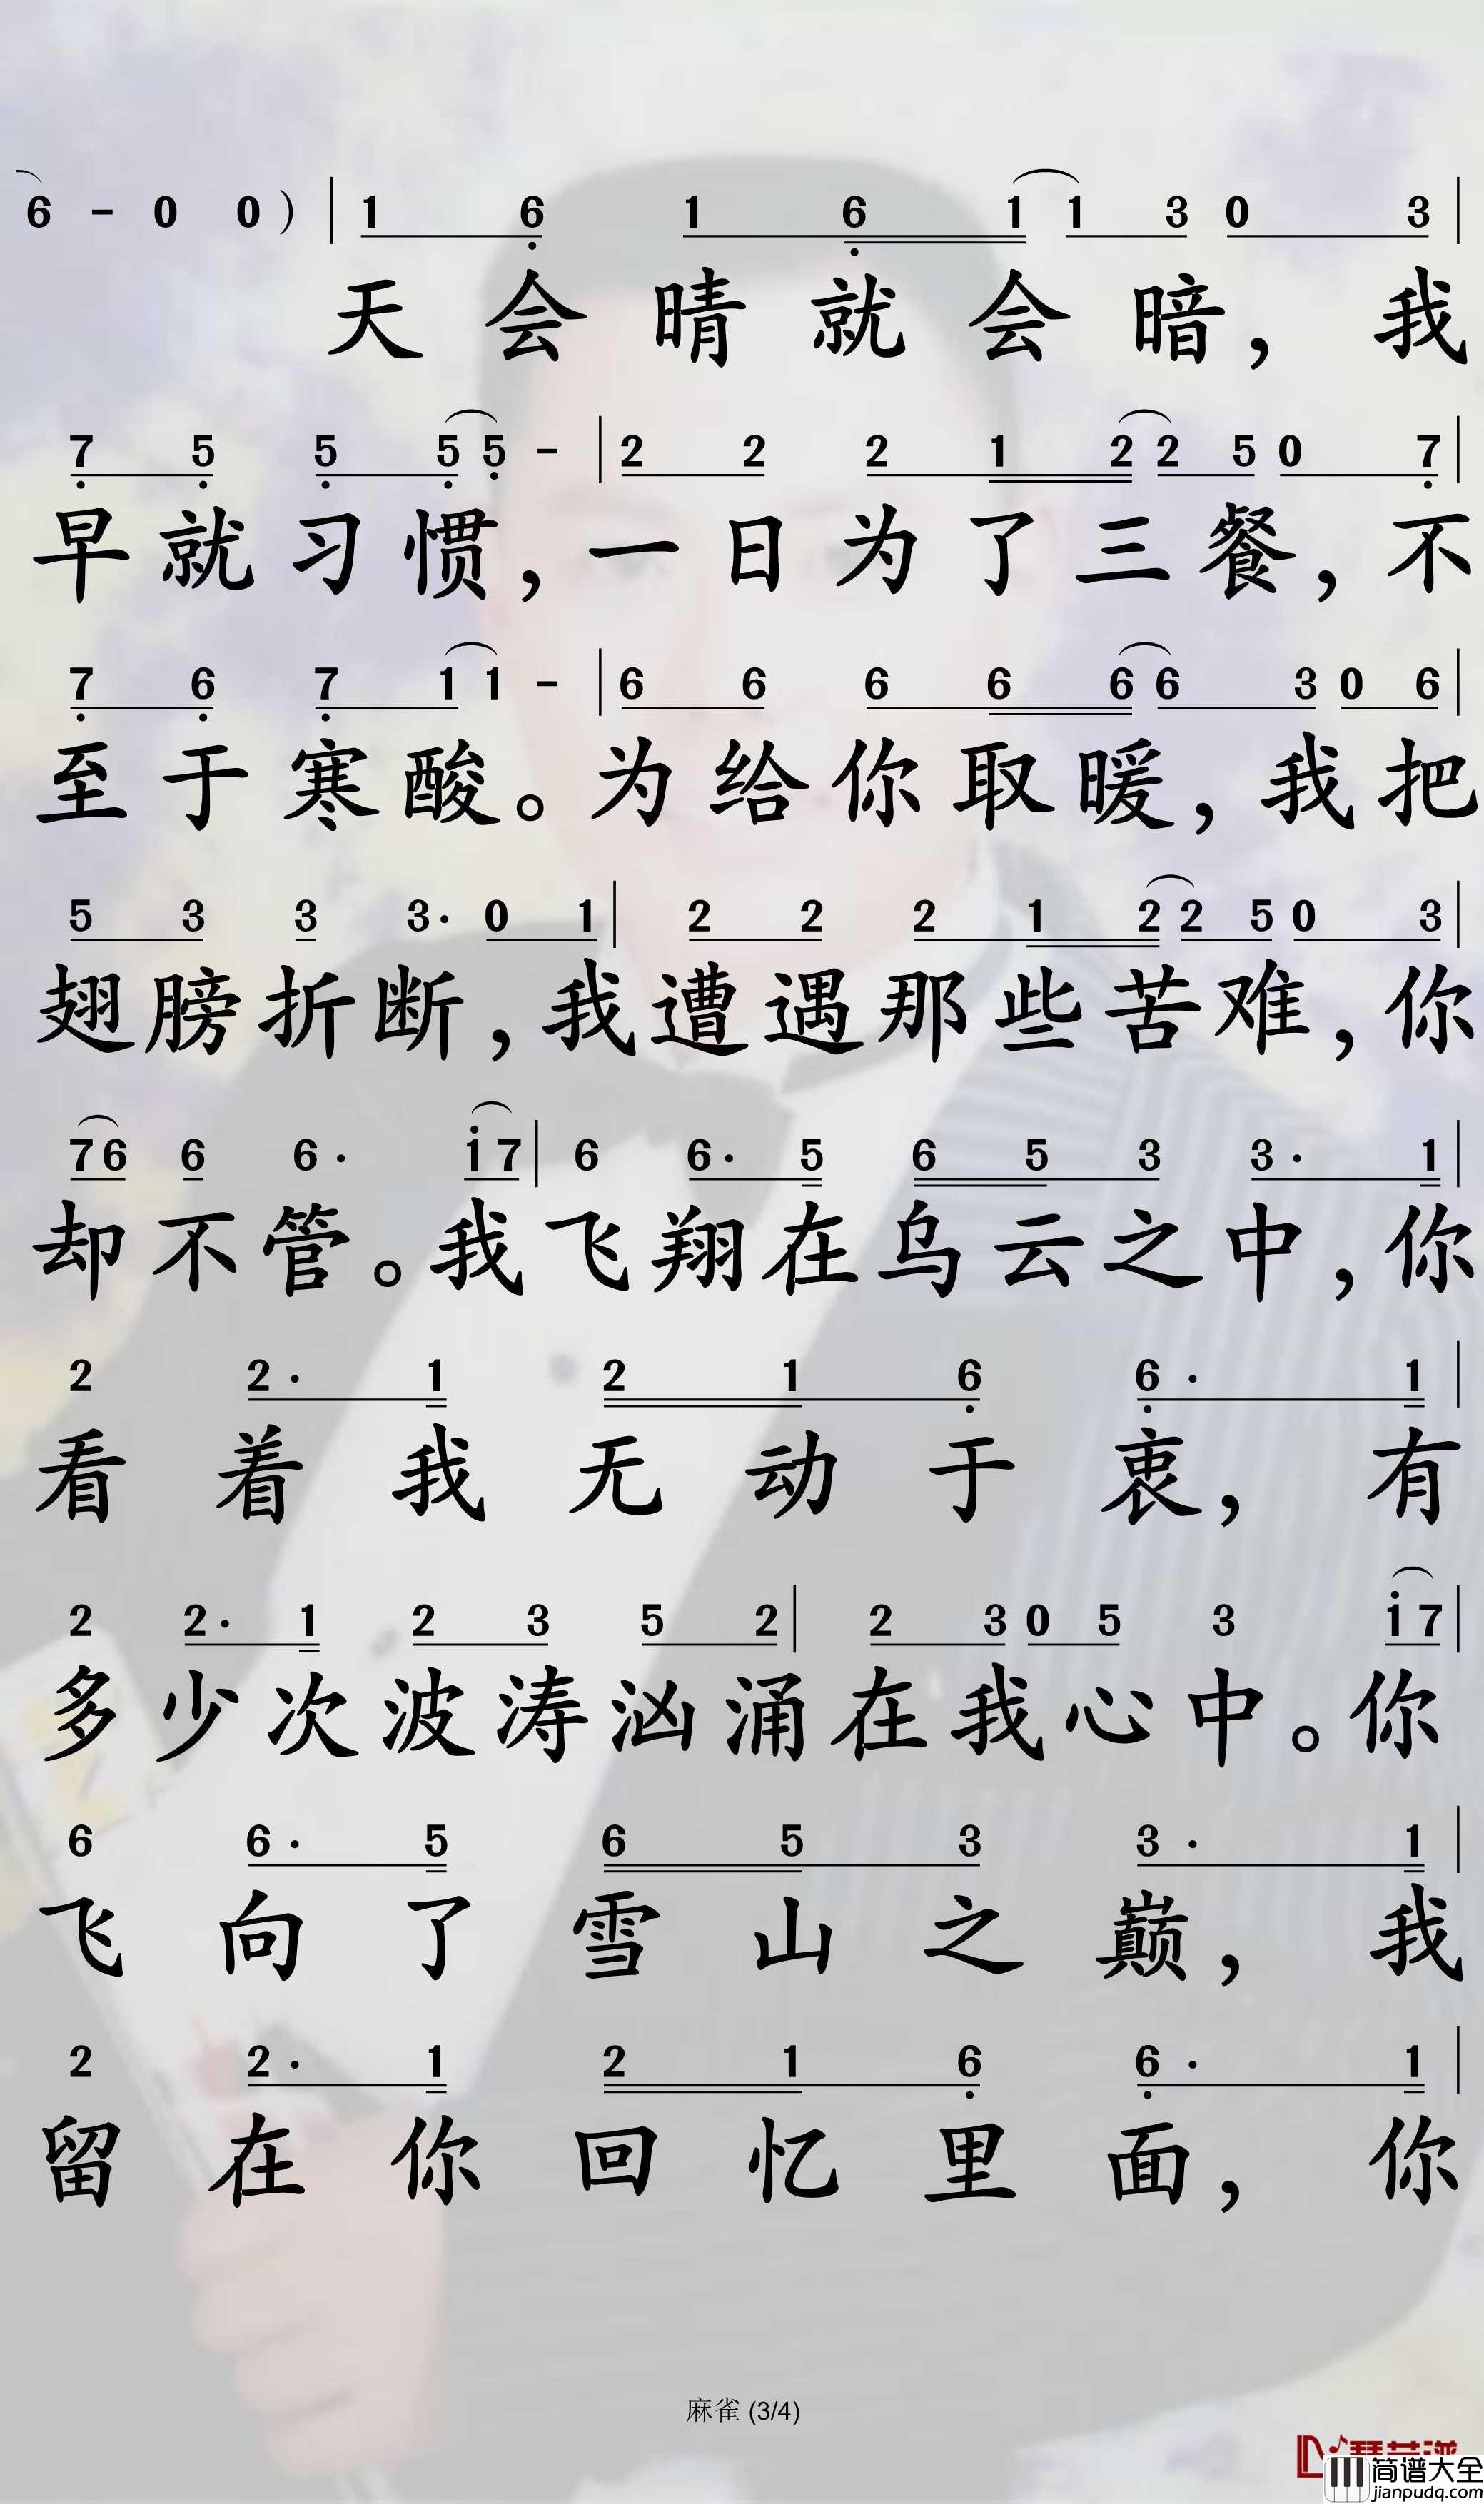 6 - 0 0 ) | 1 6 1 6 1 1 3 0 3 |
天会晴就会暗，我
7 5 5 5 5 - | 2 2 2 1 2 2 5 0 7 |
早就习惯，一日为了三餐，不
7 6 7 1 1 - | 6 6 6 6 6 6 3 0 6 |
至于寒酸。为给你取暖，我把
5 3 3 3· 0 1 | 2 2 2 1 2 2 5 0 3 |
翅膀折断，我遭遇那些苦难，你
7 6 6 6· i 7 | 6 6· 5 6 5 3 3· 1 |
却不管。我飞翔在乌云之中，你
2 2· 1 2 1 6 6· 1 |
看着我无动于衷，有
2 2· 1 2 3 5 2 | 2 3 0 5 3 i 7 |
多少次波涛汹涌在我心中。你
6 6· 5 6 5 3 3· 1 |
飞向了雪山之巅，我
2 2· 1 2 1 6 6· 1 |
留在你回忆里面，你
麻雀 (3/4)
简谱大全
jianpudq.com